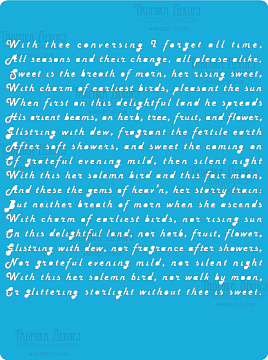 With thee conversing I forget all time,
All seasons and their change, all please alike,
Sweet is the breath of morn, her rising sweet,
With charm of earliest birds, pleasant the sun
When first on this delightful land he spreads
His orient beams, on herb, tree, fruit, and flower,
Glistring with dew, fragrant the fertile earth
After soft showers, and sweet the coming on
Of grateful evening mild, then silent night
With this her solemn bird and this fair moon,
And these the gems of heav'n, her starry train:
But neither breath of morn when she ascends
With charm of earliest birds, nor rising sun
On this delightful land, nor herb, fruit, flower,
Glistring with dew, nor fragrance after showers,
Nor grateful evening mild, nor silent night
With this her solemn bird, nor walk by moon,
Or glittering starlight without thee is sweet.